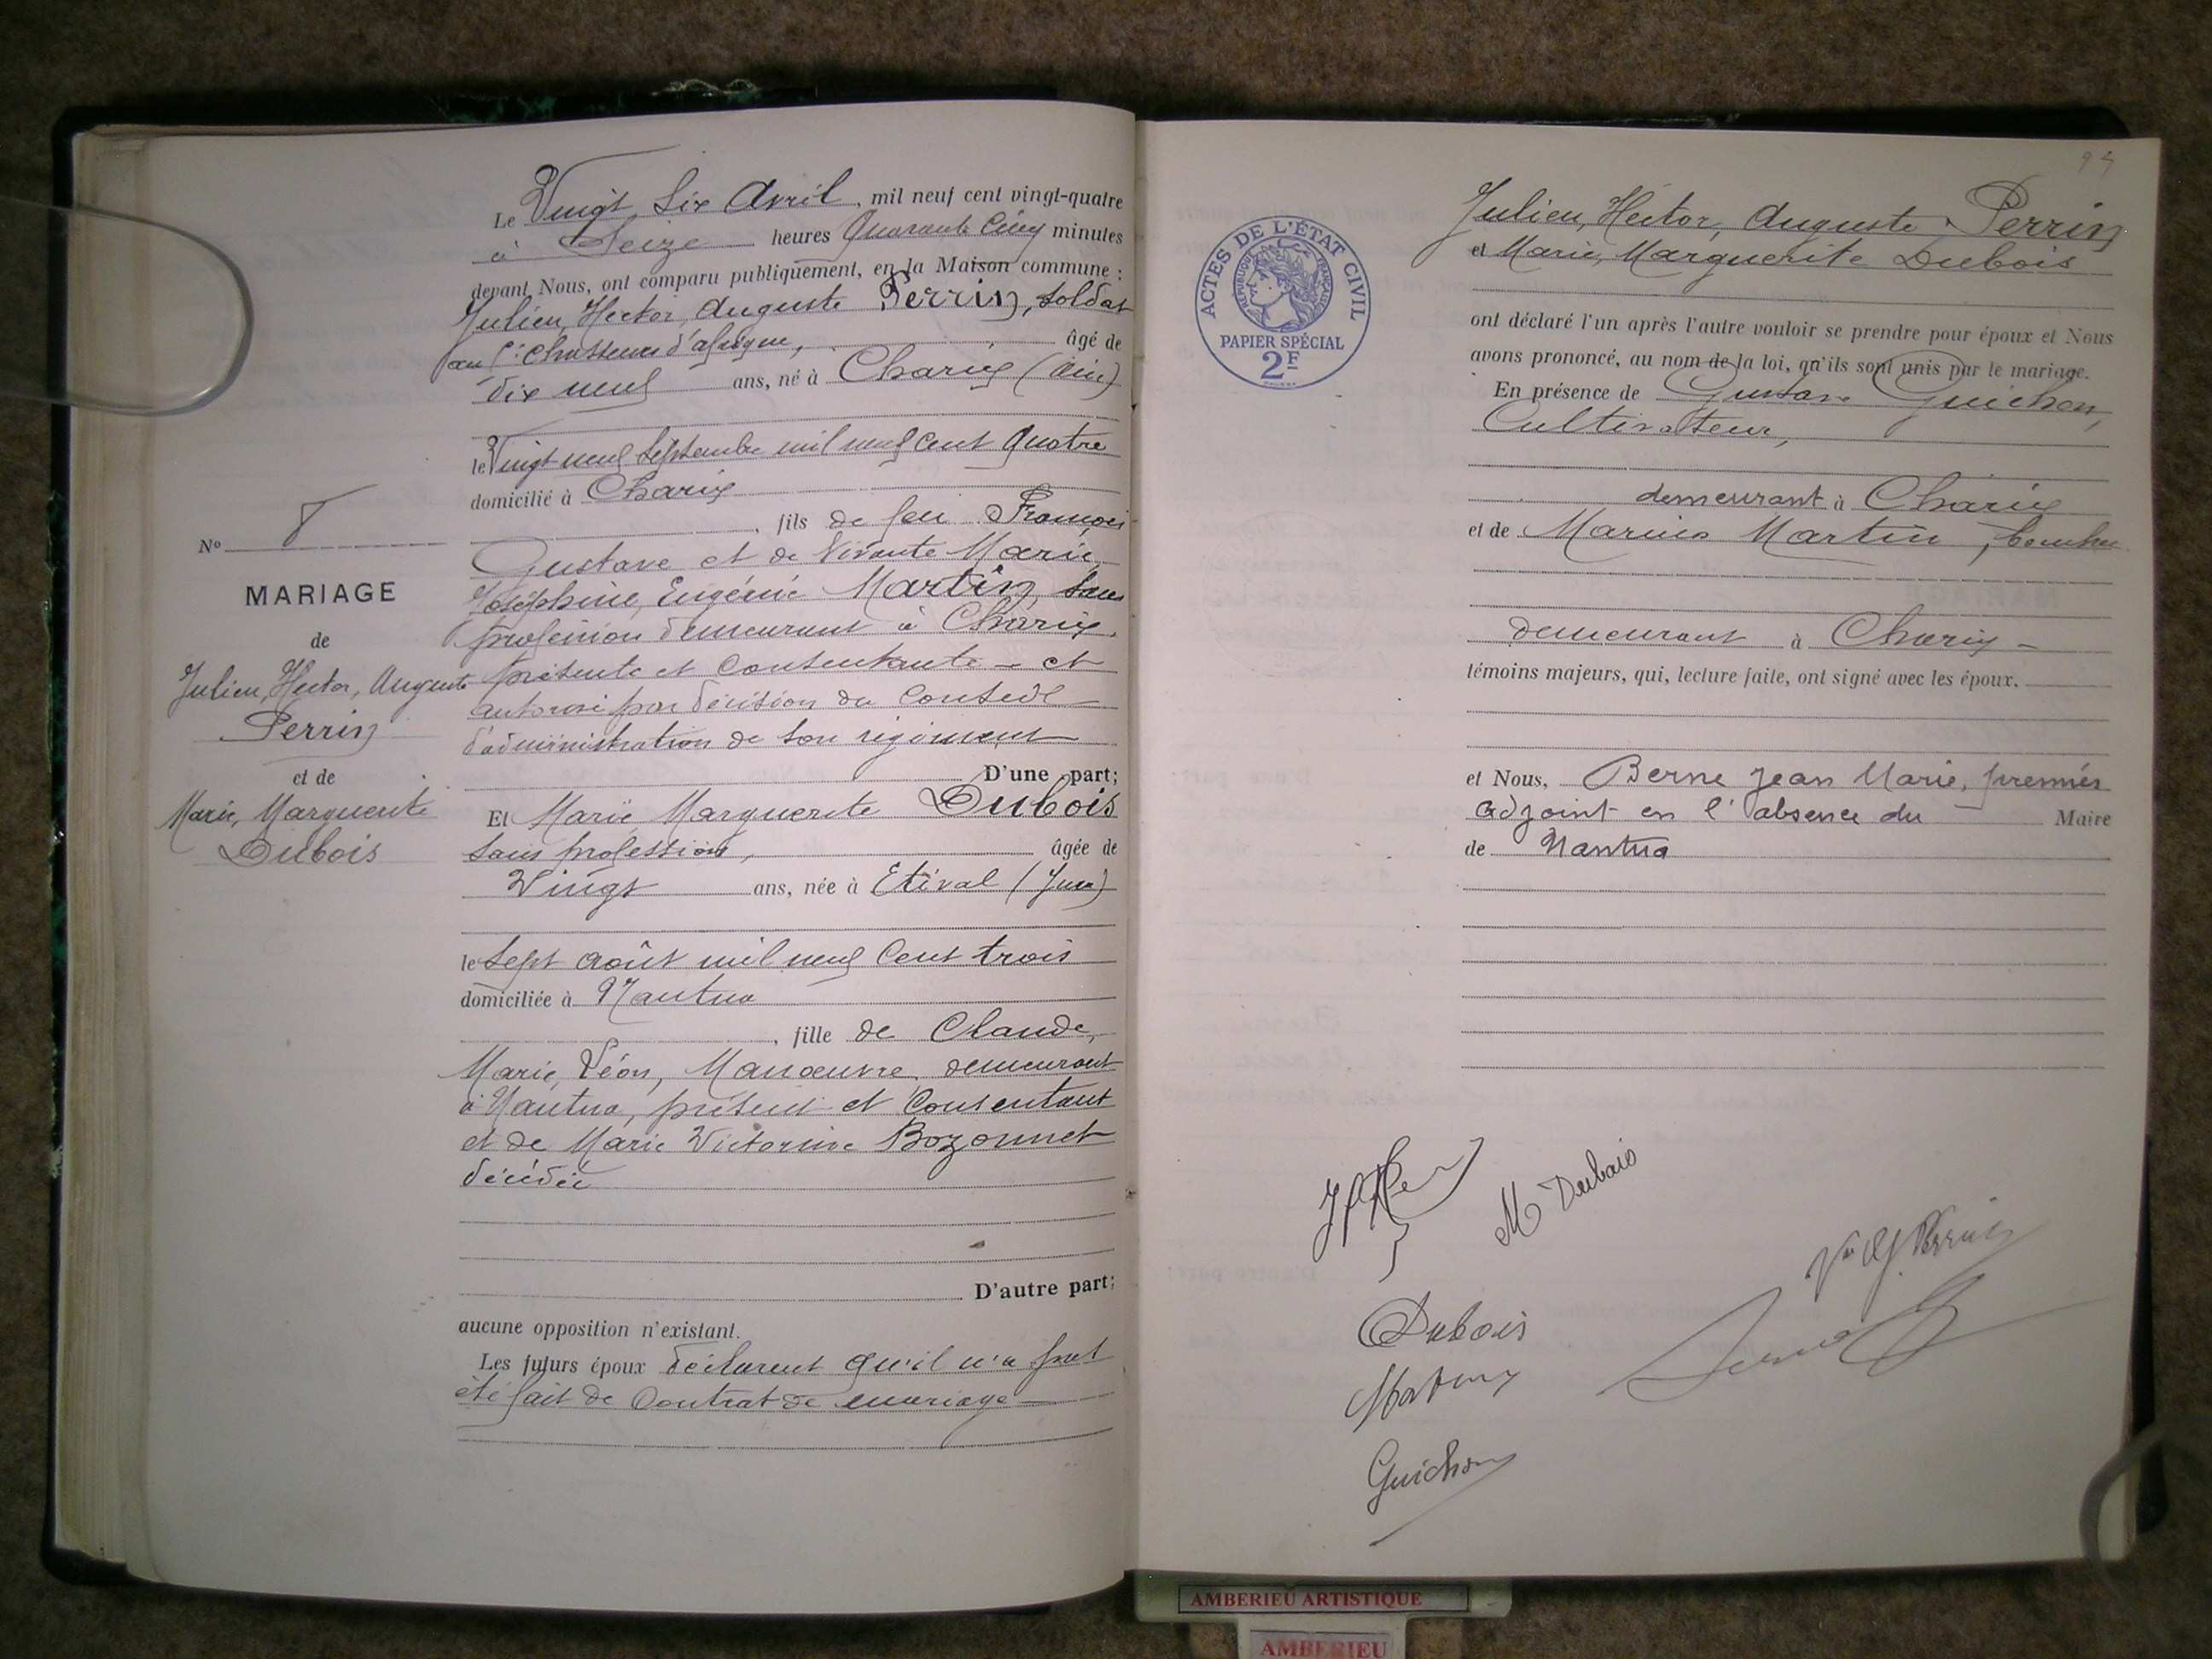 Le Vingt Six Avril, mil neuf cent vingt-quatre
à Seize heures Quarante Cinq minutes
devant Nous, ont comparu publiquement, en la Maison commune :
Julien, Hector, Auguste Perrin, soldat
au chasseurs d'afrique, âgé de
dix neuf ans, né à Charix (Ain)
le Vingt neuf Septembre mil neuf cent quatre
domicilié à Charix
, fils de feu François
Gustave et de Vivante Marie
Joséphine, Eugénie Martin, sans
profession demeurant à Charix,
présente et consentante - et
autorisé par décision du Conseil
d'administration de son régiment
D'une part;
Et Marie Marguerite Dubois
sans profession, âgée de
Vingt ans, née à Etival (Jura)
le sept août mil neuf cent trois
domiciliée à Nantua
, fille de Claude,
Marie, Léon, Manœuvre, demeurant
à Nantua, présent et consentant
et de Marie Victorine Bozonnet
décédée
D'autre part;
aucune opposition n'existant.
Les futurs époux déclarent qu'il n'a pas
été fait de Contrat de mariage
No 8
MARIAGE
de
Julien, Hector, Auguste
Perrin
et de
Marie, Marguerite
Dubois
ACTES DE L'ÉTAT CIVIL
RÉPUBLIQUE FRANÇAISE
PAPIER SPÉCIAL
2F
Julien, Hector, Auguste Perrin
et Marie, Marguerite Dubois
ont déclaré l'un après l'autre vouloir se prendre pour époux et Nous
avons prononcé, au nom de la loi, qu'ils sont unis par le mariage.
En présence de Gustave Guichon,
Cultivateur,
demeurant à Charix
et de Marius Martin,
demeurant à Charix -
témoins majeurs, qui, lecture faite, ont signé avec les époux.
et Nous, Berne Jean Marie, premier
adjoint en l'absence du Maire
de Nantua
M Dubois
Vve G Perrin
Dubois
Martin
Guichon
AMBERIEU ARTISTIQUE
AMBERIEU